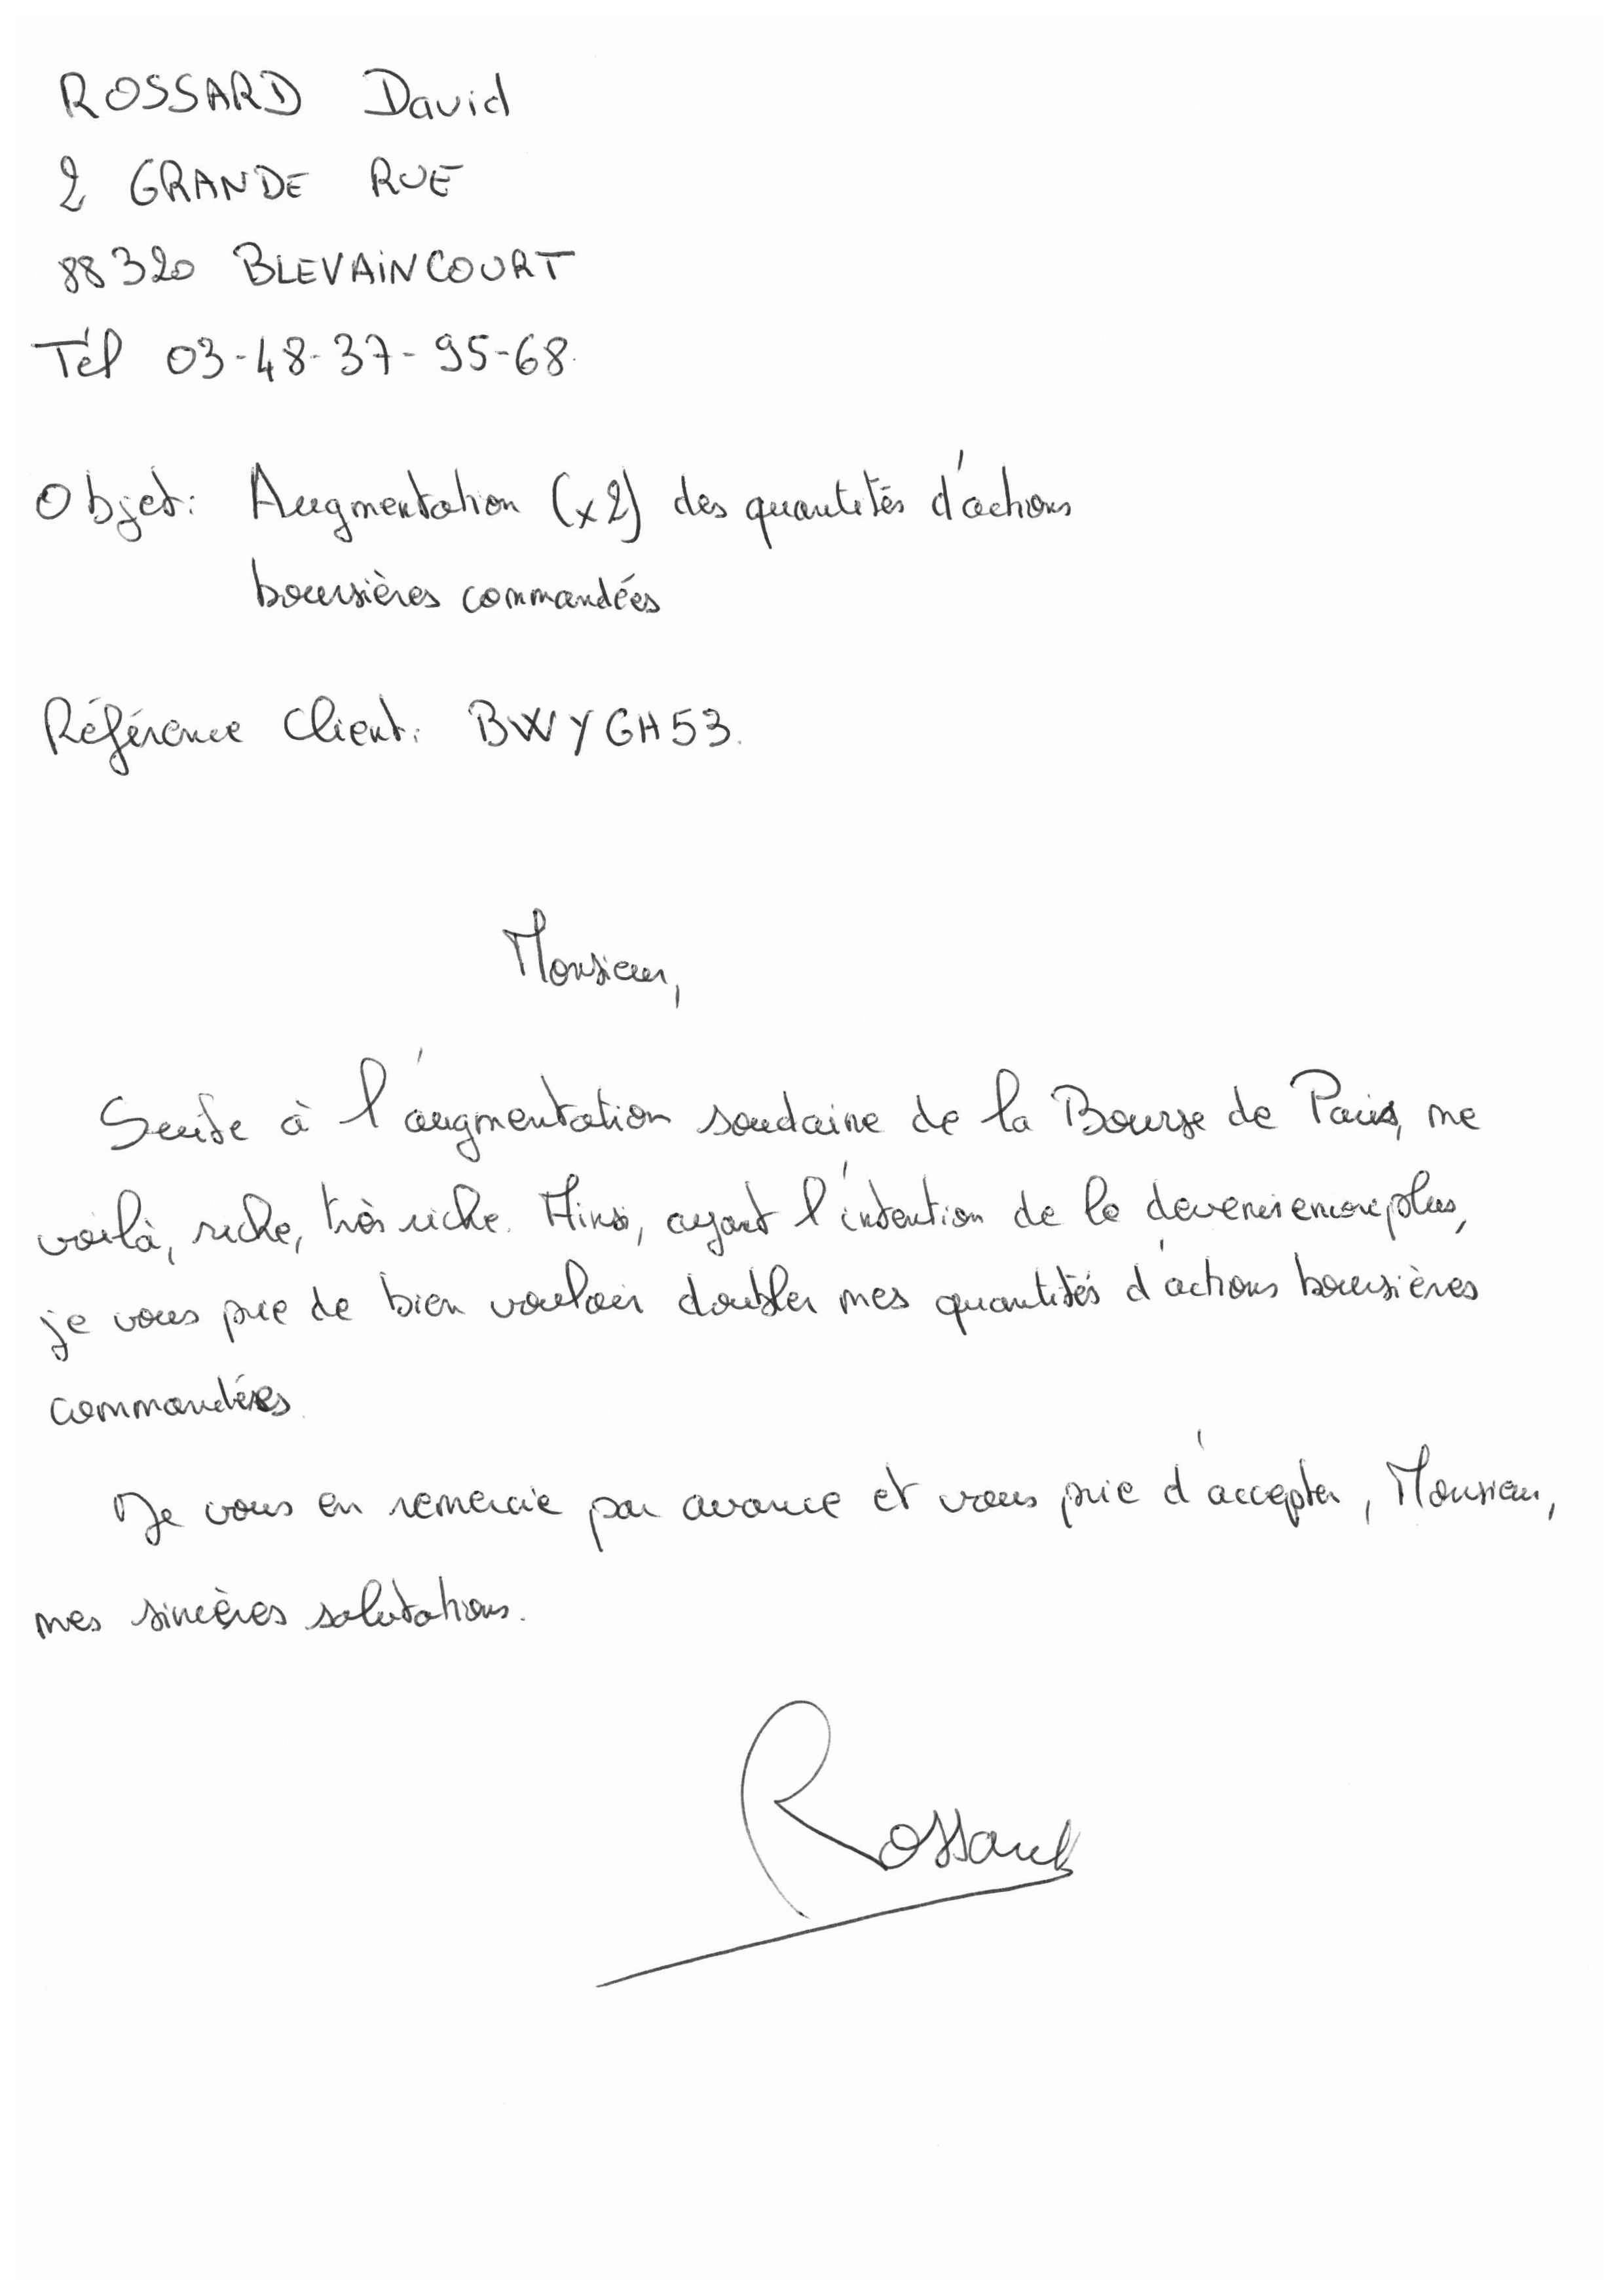 ROSSARD David
2 GRANDE RUE
88320 BLEVAINCOURT
Tél 03-48-37-95-68.
Objet: Augmentation (x2) des quantités d'actions
boursières commandées
Référence Client: BWYGH53.
Monsieur,
Suite à l'augmentation soudaine de la Bourse de Paris, me
voilà, riche, très riche. Ainsi, ayant l'intention de le devenir encore plus,
je vous prie de bien vouloir doubler mes quantités d'actions boursières
commandées.
Je vous en remercie par avance et vous prie d'accepter, Monsieur,
mes sincères salutations.
Rossard